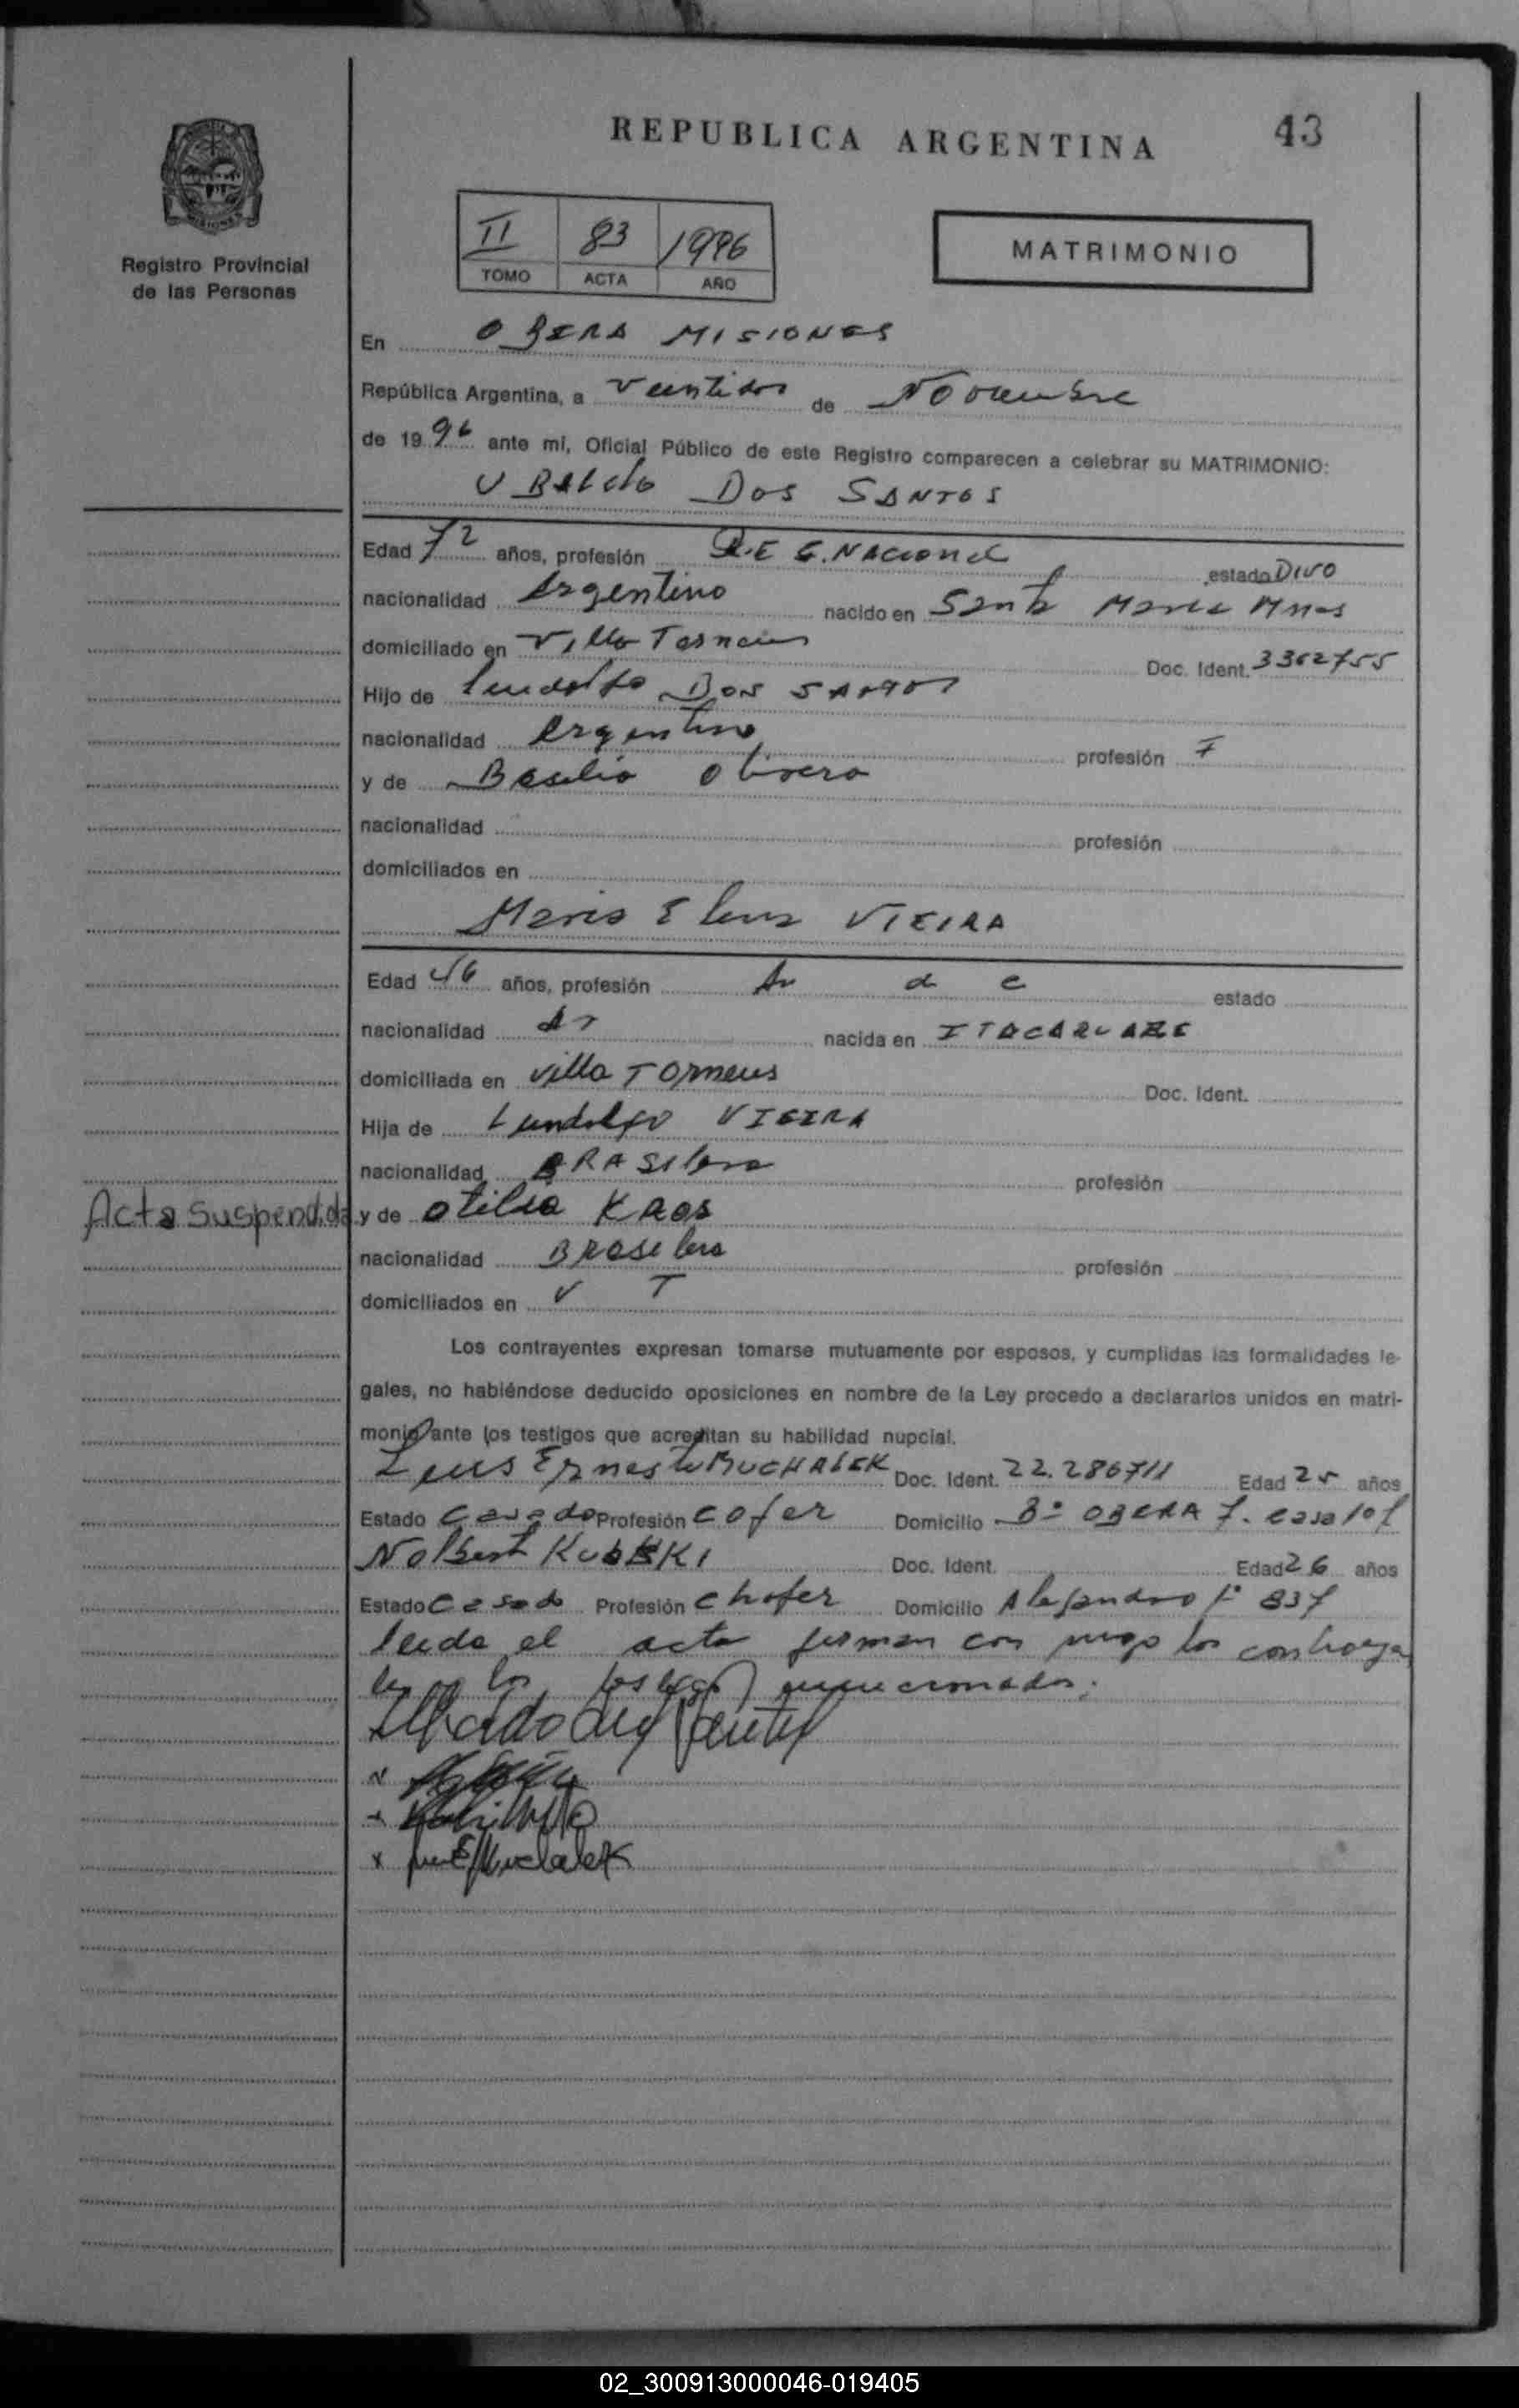 REPUBLICA ARGENTINA
43
Registro Provincial
de las Personas
II 83 1996
TOMO ACTA AÑO
MATRIMONIO
En OBERA MISIONES
República Argentina, a Veintidos de Noviembre
de 19 96 ante mí, Oficial Público de este Registro comparecen a celebrar su MATRIMONIO:
UBALDO DOS SANTOS
Edad 72 años, profesión G. NACIONAL estado DIVO
nacionalidad Argentino nacido en Santa Maria Mnes
domiciliado en Villa Doc. Ident. 3362755
Hijo de DOS SANTOS
nacionalidad Argentino profesión F
y de Basilia Olivera
nacionalidad profesión
domiciliados en
Maria Elena VIEIRA
Edad 46 años, profesión A d c estado
nacionalidad Ar nacida en ITACARUARE
domiciliada en Villa Torneus Doc. Ident.
Hija de Lundolfo VIEIRA
nacionalidad BRASilera profesión
Acta suspendida
y de Otilia KAOS
nacionalidad BRasilera profesión
domiciliados en V T
Los contrayentes expresan tomarse mutuamente por esposos, y cumplidas las formalidades le-
gales, no habiéndose deducido oposiciones en nombre de la Ley procedo a declararlos unidos en matri-
monio ante los testigos que acreditan su habilidad nupcial.
Luis Ernesto BUCHALEK Doc. Ident. 22.286711 Edad 25 años
Estado Casado Profesión Cofer Domicilio Bº OBERA 7. casa 101
Nolbert KUBSKI Doc. Ident. Edad 26 años
Estado Casado Profesión Chofer Domicilio Alejandro 837
leida el acta firman con migo los contrayen
tes los testigos mencionados.
02_300913000046-019405